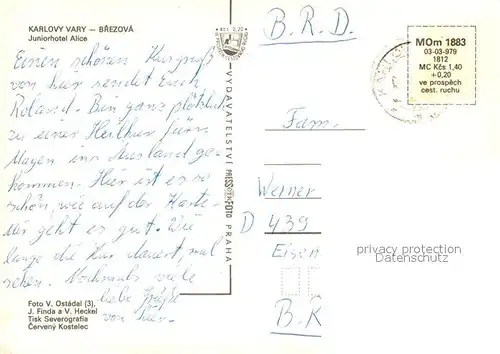 KARLOVY VARY — BŘEZOVÁ
Juniorhotel Alice
Einen schönen Kurgruß
von hier sendet Euch
Roland. Bin ganz plötzlich
zu einer Heilkur fürn
Magen ins Ausland ge-
kommen. Hier ist es so
schön, wie auf der Karte.
Mir geht es gut. Wie
lange die Kur dauert, mal
sehen. Nochmals viele
liebe Grüße
von hier.
Foto V. Ostádal (3),
J. Finda a V. Heckel
Tisk Severografia
Červený Kostelec
Kčs 0,20
VYDAVATELSTVÍ PRESSFOTO PRAHA
B.R.D.
MOm 1883
03-03-979
1812
MC Kčs 1,40
+0,20
ve prospěch
cest. ruchu
Fam.
Werner
D 439
Eisen
B.R
privacy protection
Datenschutz